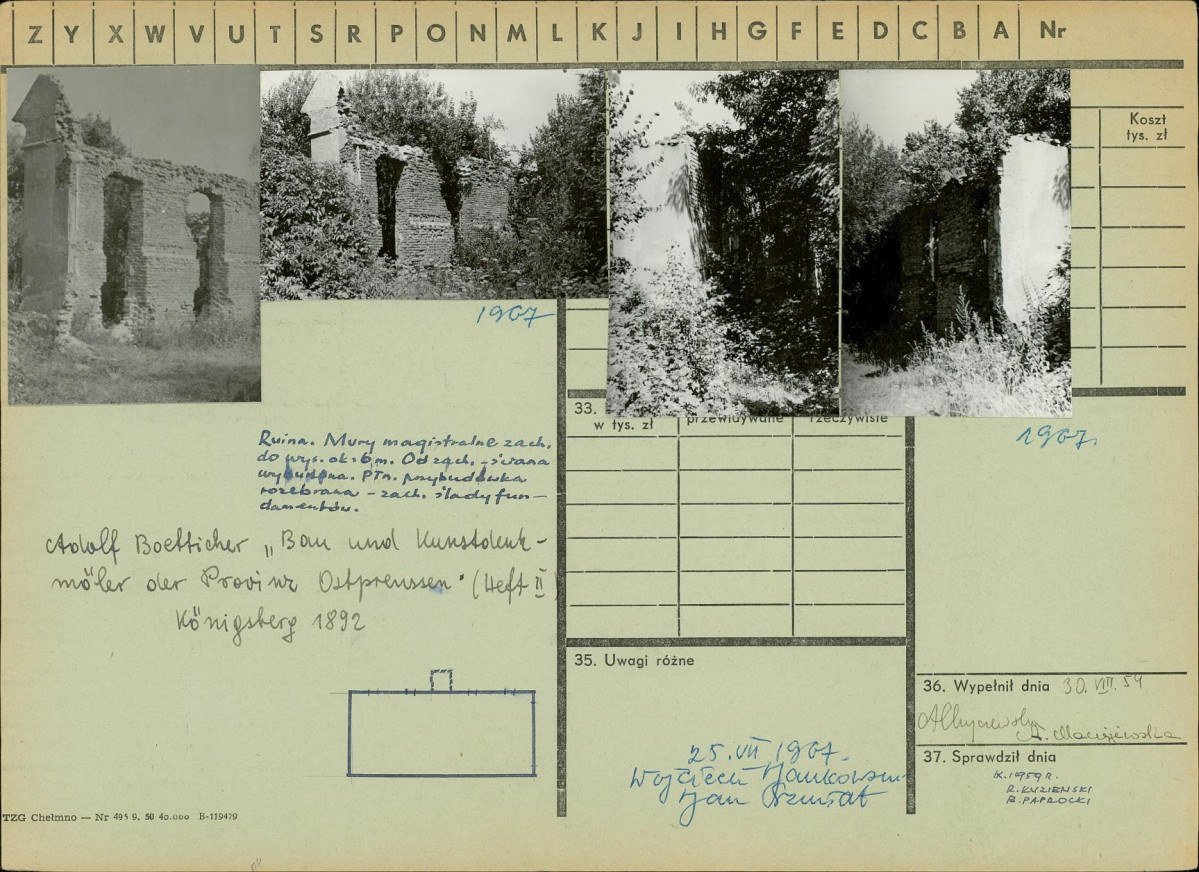 Z Y X W V U T S R P O N M L K J I H G F E D C B A Nr
Koszt
tys. zł
1967
33.
w tys. zł
przewidywane
rzeczywiste
1967.
Ruina. Mury magistralne zach.
do wys. ok. 6m. Od zach. - ściana
wyburzona. Płn. przybudówka
rozebrana - zach. ślady fun-
damentów.
Adolf Boetticher „Bau und Kunstdenk-
mäler der Provinz Ostpreussen" (Heft II)
Königsberg 1892
35. Uwagi różne
25. VII 1967.
Wojciech Jankowski
Jan
36. Wypełnił dnia 30. VIII. 59
A. Maciejewska
37. Sprawdził dnia
X. 1959 r.
R. KUZIEŃSKI
B. PAPROCKI
TZG Chełmno — Nr 495 9. 50 40.000 B-119479